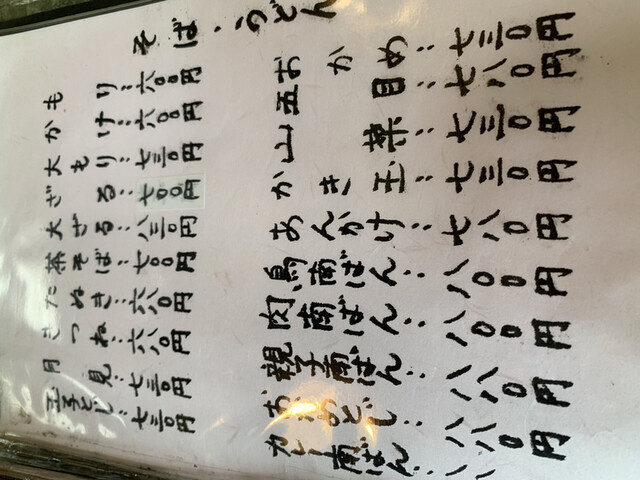 そば・うどん
もり‥六〇〇円
かけ‥六〇〇円
大もり‥七三〇円
ざる‥七〇〇円
大ざる‥八三〇円
茶そば‥七〇〇円
たぬき‥六八〇円
きつね‥六八〇円
月見‥七三〇円
玉子とじ‥七三〇円
おかめ‥七三〇円
五目‥七八〇円
山菜‥七三〇円
かき玉‥七三〇円
あんかけ‥七八〇円
鳥南ばん‥八〇〇円
肉南ばん‥八〇〇円
親子南ばん‥八八〇円
おかめとじ‥八八〇円
カレー南ばん‥八